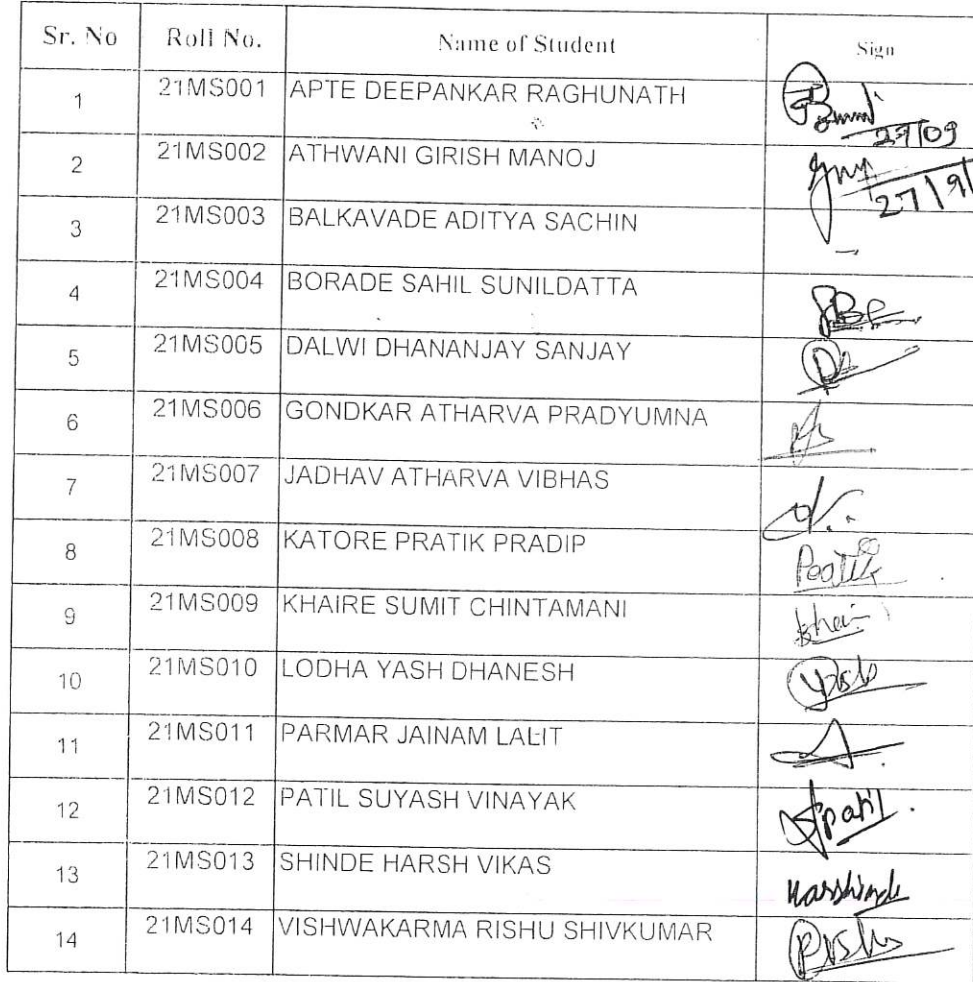 Sr. No Roll No. Name of Student Sign
1 21MS001 APTE DEEPANKAR RAGHUNATH 27/09
2 21MS002 ATHWANI GIRISH MANOJ 27/9/
3 21MS003 BALKAVADE ADITYA SACHIN –
4 21MS004 BORADE SAHIL SUNILDATTA
5 21MS005 DALWI DHANANJAY SANJAY
6 21MS006 GONDKAR ATHARVA PRADYUMNA
7 21MS007 JADHAV ATHARVA VIBHAS
8 21MS008 KATORE PRATIK PRADIP
9 21MS009 KHAIRE SUMIT CHINTAMANI
10 21MS010 LODHA YASH DHANESH
11 21MS011 PARMAR JAINAM LALIT
12 21MS012 PATIL SUYASH VINAYAK
13 21MS013 SHINDE HARSH VIKAS
14 21MS014 VISHWAKARMA RISHU SHIVKUMAR